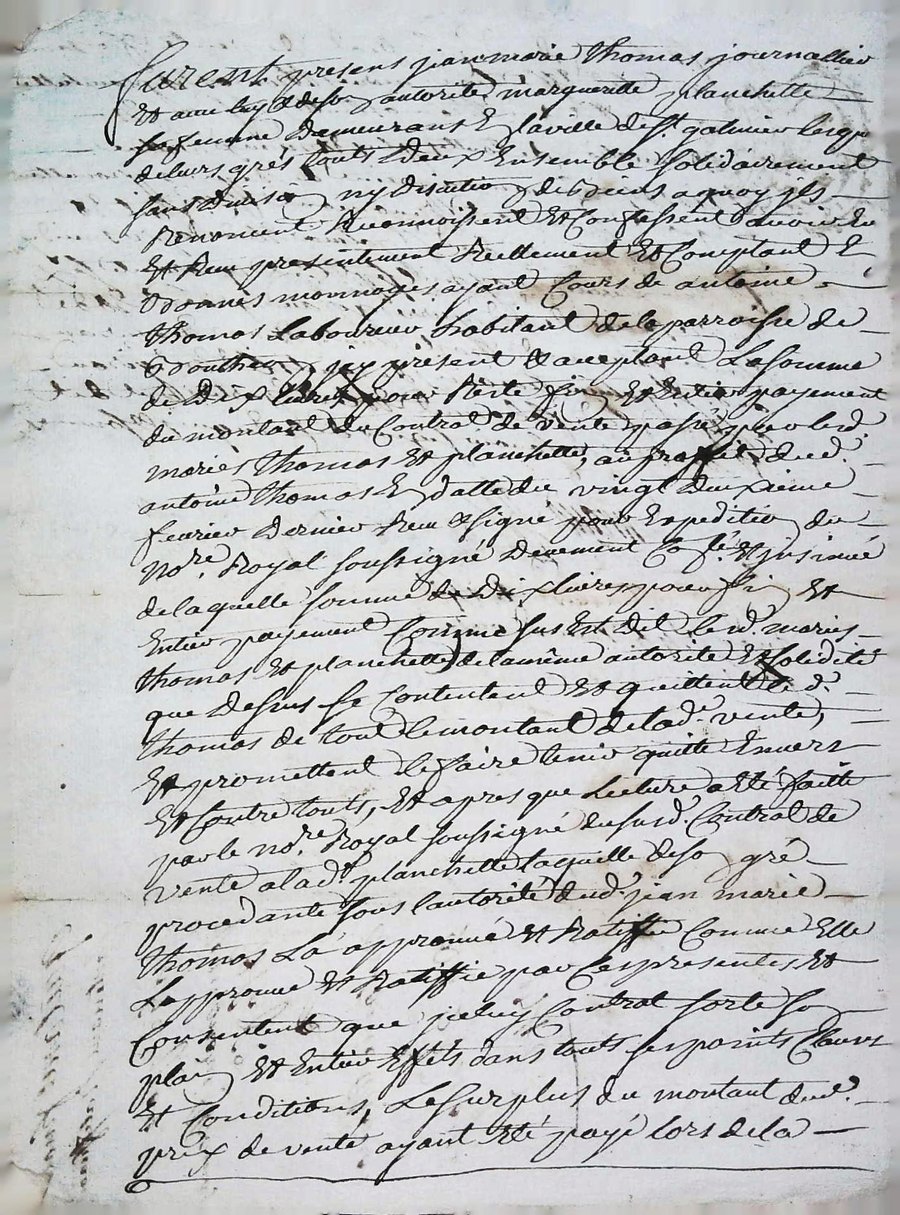 furent presens jean marie Thomas journallier
Et avec luy & de son autorité margueritte planchette
sa femme Demeurans En la ville de St. galmier lesqu
de leurs grés touts Deux Ensemble solidairement
sans Division ny Discution de Biens a quoy ils
Renoncent Reconnoissent Et Confessent avoir Eu
Et Reçu presentement Réellement Et Comptant En
Bonnes monnoyes ayant Cours de antoine
Thomas Laboureur habitant de la parroisse de
Bouthéon, icy présent & acceptant La somme
de Dix livres pour Reste fin Et Entier payement
du montant du Contrat de vente passé par lesd.
mariés Thomas Et planchette, au proffit dud.
antoine Thomas En datte du vingt Deuxieme
fevrier Dernier Reçu & signé pour Expedition du
Nore. Royal soussigné Dement Conlé. Et insinué
de laquelle somme de Dix livres pour fin Et
Entier payement Comme sus Est Dit lesd. mariés
Thomas Et planchette, de la même autorité Et solidité
que Dessus se Contentent Et quittent led.
Thomas de tout le montant de lade. vente,
Et promettent le faire tenir quitte Envers
Et Contre touts, Et apres que Lecture a Eté faitte
par le nore. Royal soussigné du susd. Contrat de
vente a lade. planchette laquelle de son gré
procedante sous l'autorité dud. jean marie
Thomas La approuvé Et Ratiffié Comme Elle
L'approuve Et Ratiffie par Ces presentes, Et
Consentent que iceluy Contrat sorte son
plain Et Entier Effét dans touts ses points Clauses
Et Conditions, Le surplus du montant dud.
prix de vente ayant Eté payé lors de la